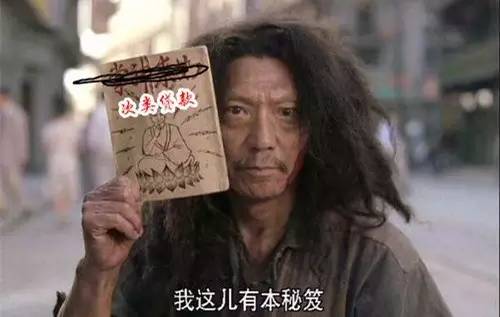 次类贷款
我这儿有本秘笈